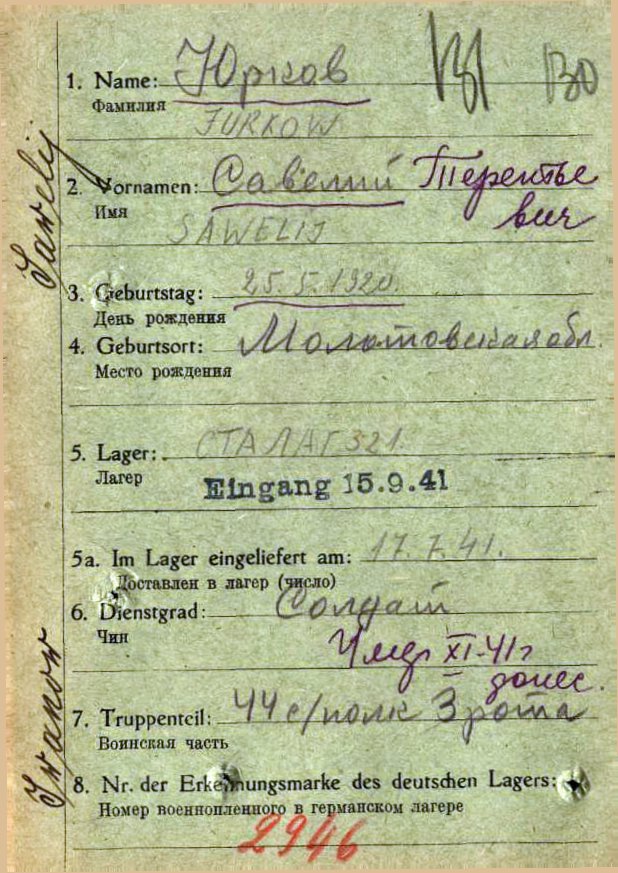 1. Name: Юрков 131 130
Фамилия
JURKOW
2. Vornamen: Савелий Терентье
Имя вич
SAWELIJ
3. Geburtstag: 25.5.1920.
День рождения
4. Geburtsort: Молотовская обл.
Место рождения
5. Lager: СТАЛАГ 321.
Лагер
Eingang 15.9.41
5a. Im Lager eingeliefert am: 17.7.41.
Доставлен в лагер (число)
6. Dienstgrad: Солдат
Чин
Умер XI-41г
донес.
7. Truppenteil: 44 с/полк 3 рота
Воинская часть
8. Nr. der Erkennungsmarke des deutschen Lagers:
Номер военнопленного в германском лагере
2946
Sawelij
Iwanow